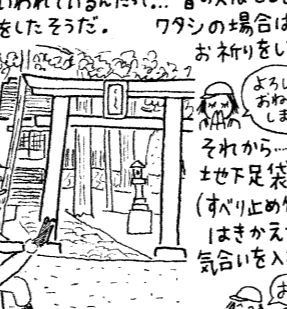 いわれているんだって…
をしたそうだ。 ワタシの場合は
お祈りをし
よろし
おねが
しま
それから…
地下足袋
(すべり止め付
はきかえ
気合いを入